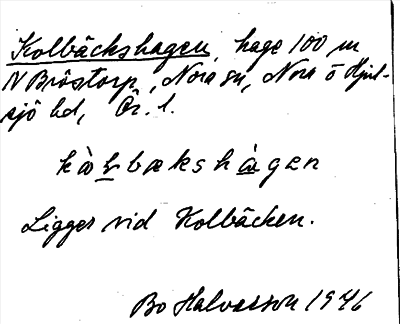 Kolbäckshagen, hage 100 m
N Bröstorp, Nora sn, Nora o Hjul-
sjö bd, Ör. l.
bækshàgen
Ligger vid Kolbäcken.
Bo Halvarsson 1946